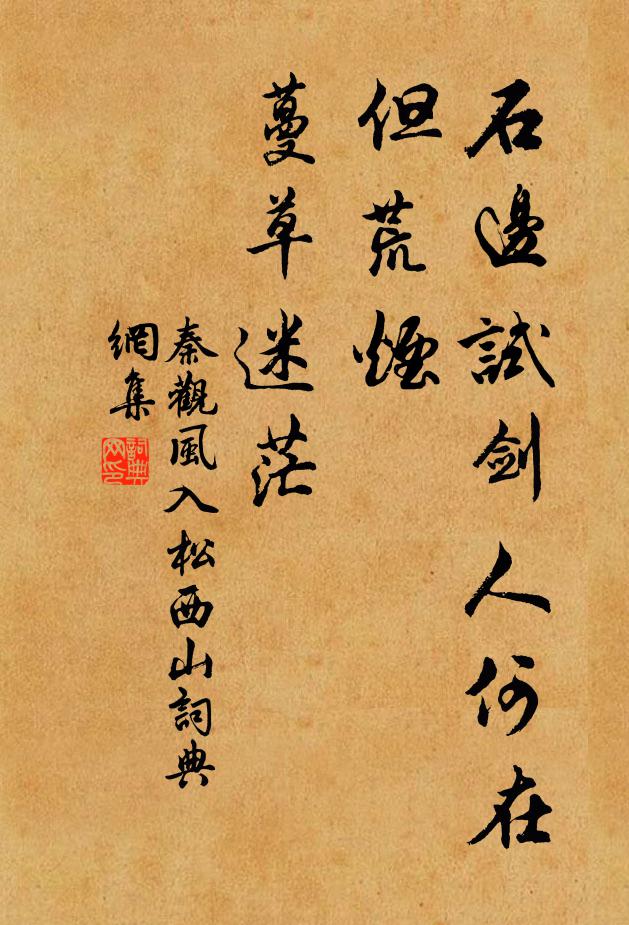 石邊試劍人何在
但荒煙
蔓草迷茫
秦觀風入松西山詞典
網集
詞典網印